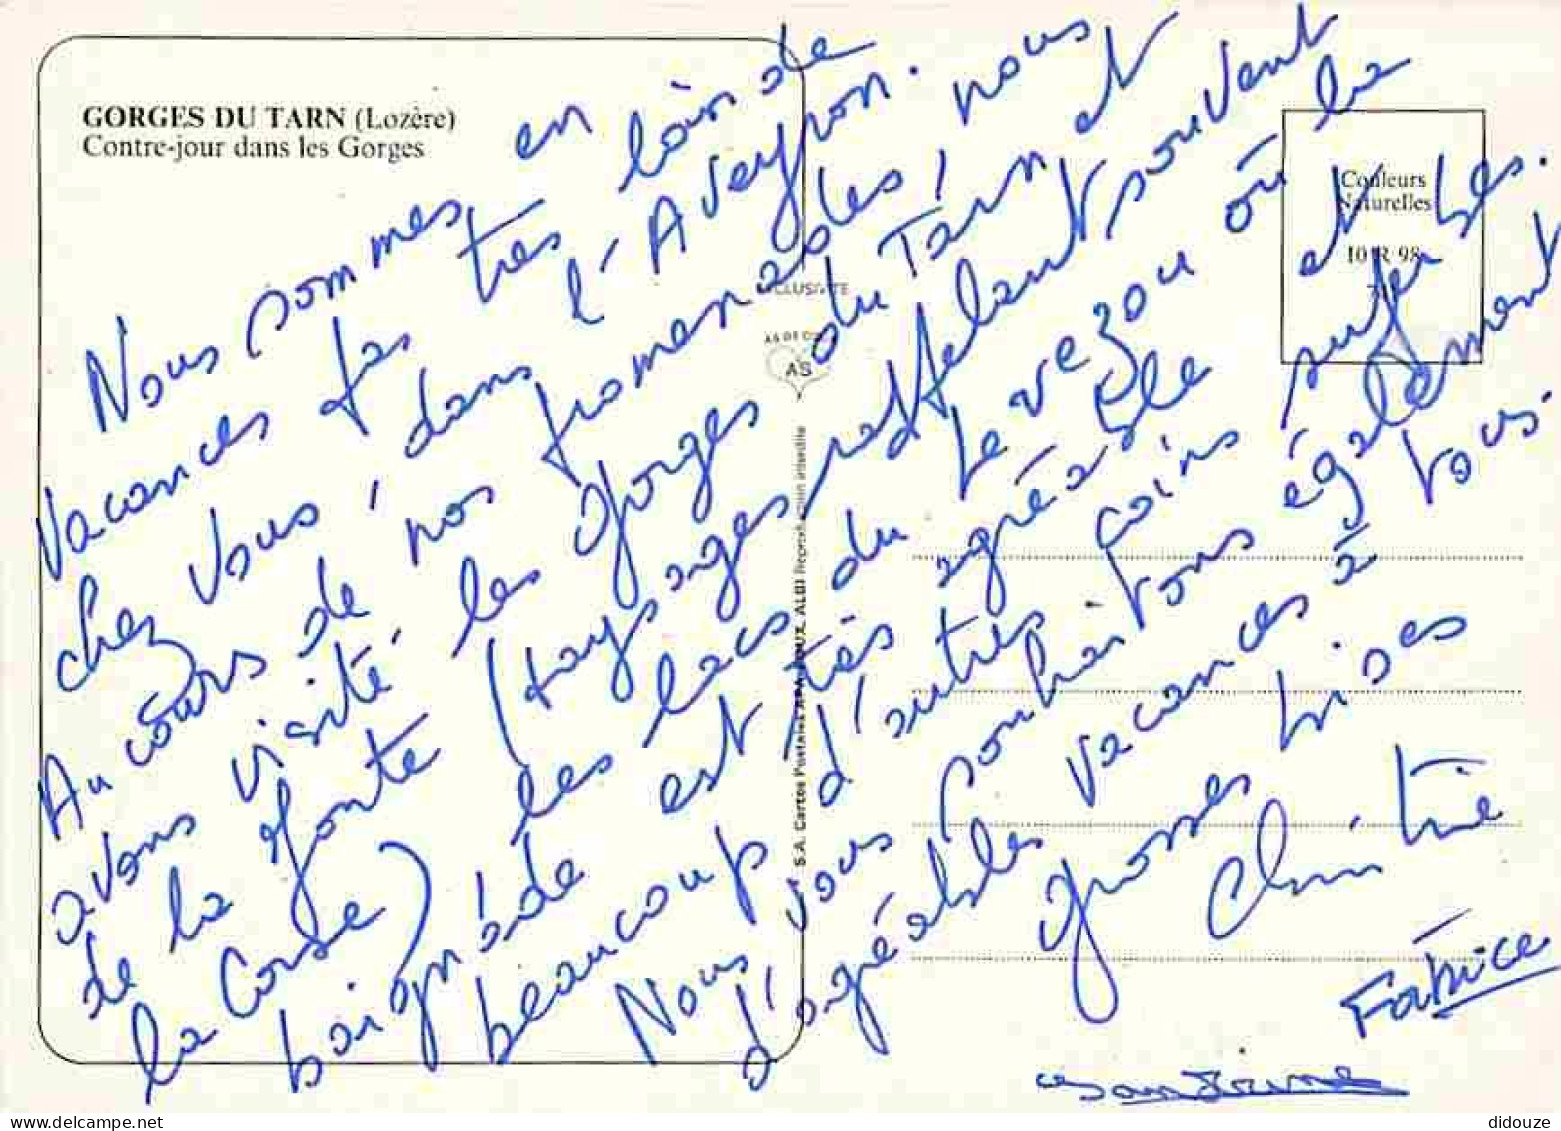 GORGES DU TARN (Lozère)
Contre-jour dans les Gorges
Couleurs
Naturelles
10 R 98
EXCLUSIVITE
AS DE CŒUR
AS
S.A. Cartes Postales APA-POUX, ALBI Reproduction interdite
Nous sommes en
vacances pas très loin de
chez vous, dans l'Aveyron.
Au cours de nos promenades, nous
avons visité les Gorges du Tarn et
de la Jonte (paysages rappelant souvent
la Corse) les lacs du Levezou où la
baignade est très agréable et
beaucoup d'autres coins superbes.
Nous vous souhaitons également
d'agréables vacances à tous.
Grosses bises
Christine
Fabrice
Sandrine
didouze